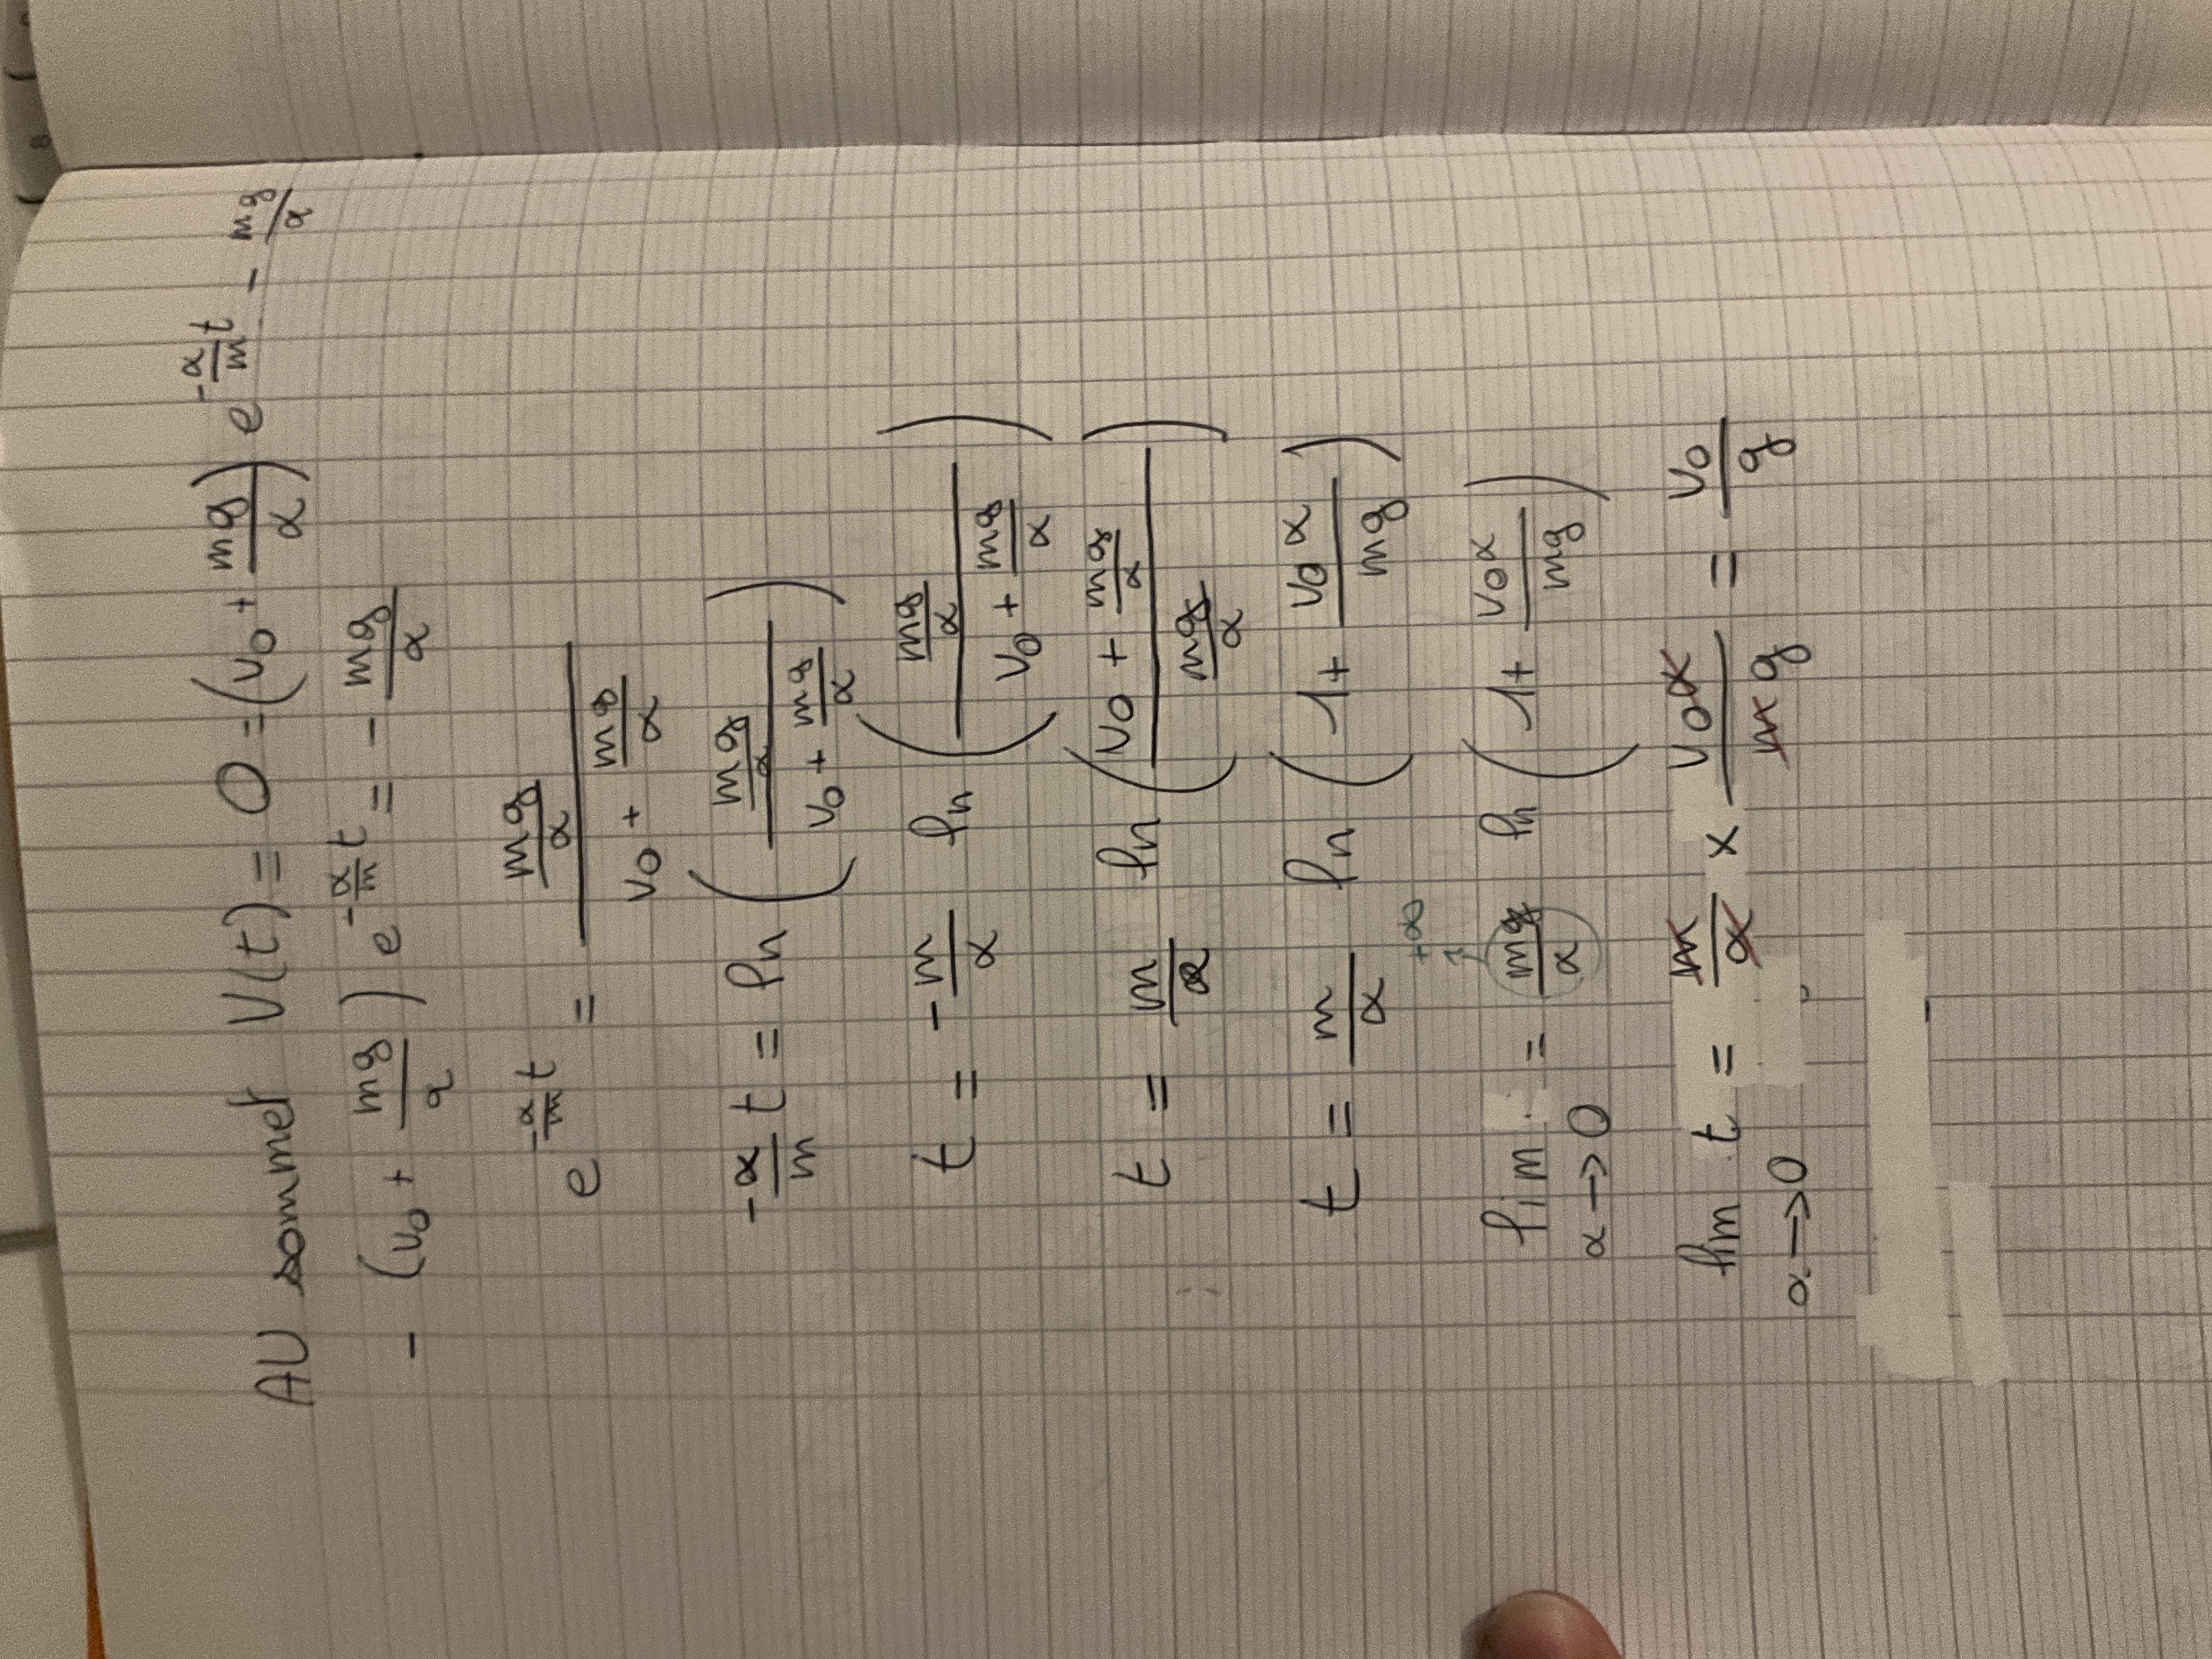 AU sommet V(t) = 0 = (v₀ + mg/α) e^(-α/m t) - mg/α
- (v₀ + mg/α) e^(-α/m t) = - mg/α
e^(-α/m t) = (mg/α)/(v₀ + mg/α)
-α/m t = ln ((mg/α)/(v₀ + mg/α))
t = - m/α ln ((mg/α)/(v₀ + mg/α))
t = m/α ln ((v₀ + mg/α)/(mg/α))
t = m/α ln (1 + v₀α/mg)
+∞
lim = mg/α ln (1 + v₀α/mg)
α → 0
lim t = m/α × v₀α/mg = v₀/g
α → 0